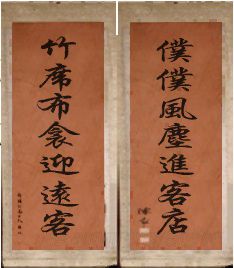 僕僕風塵進客店
竹席布衾迎遠客